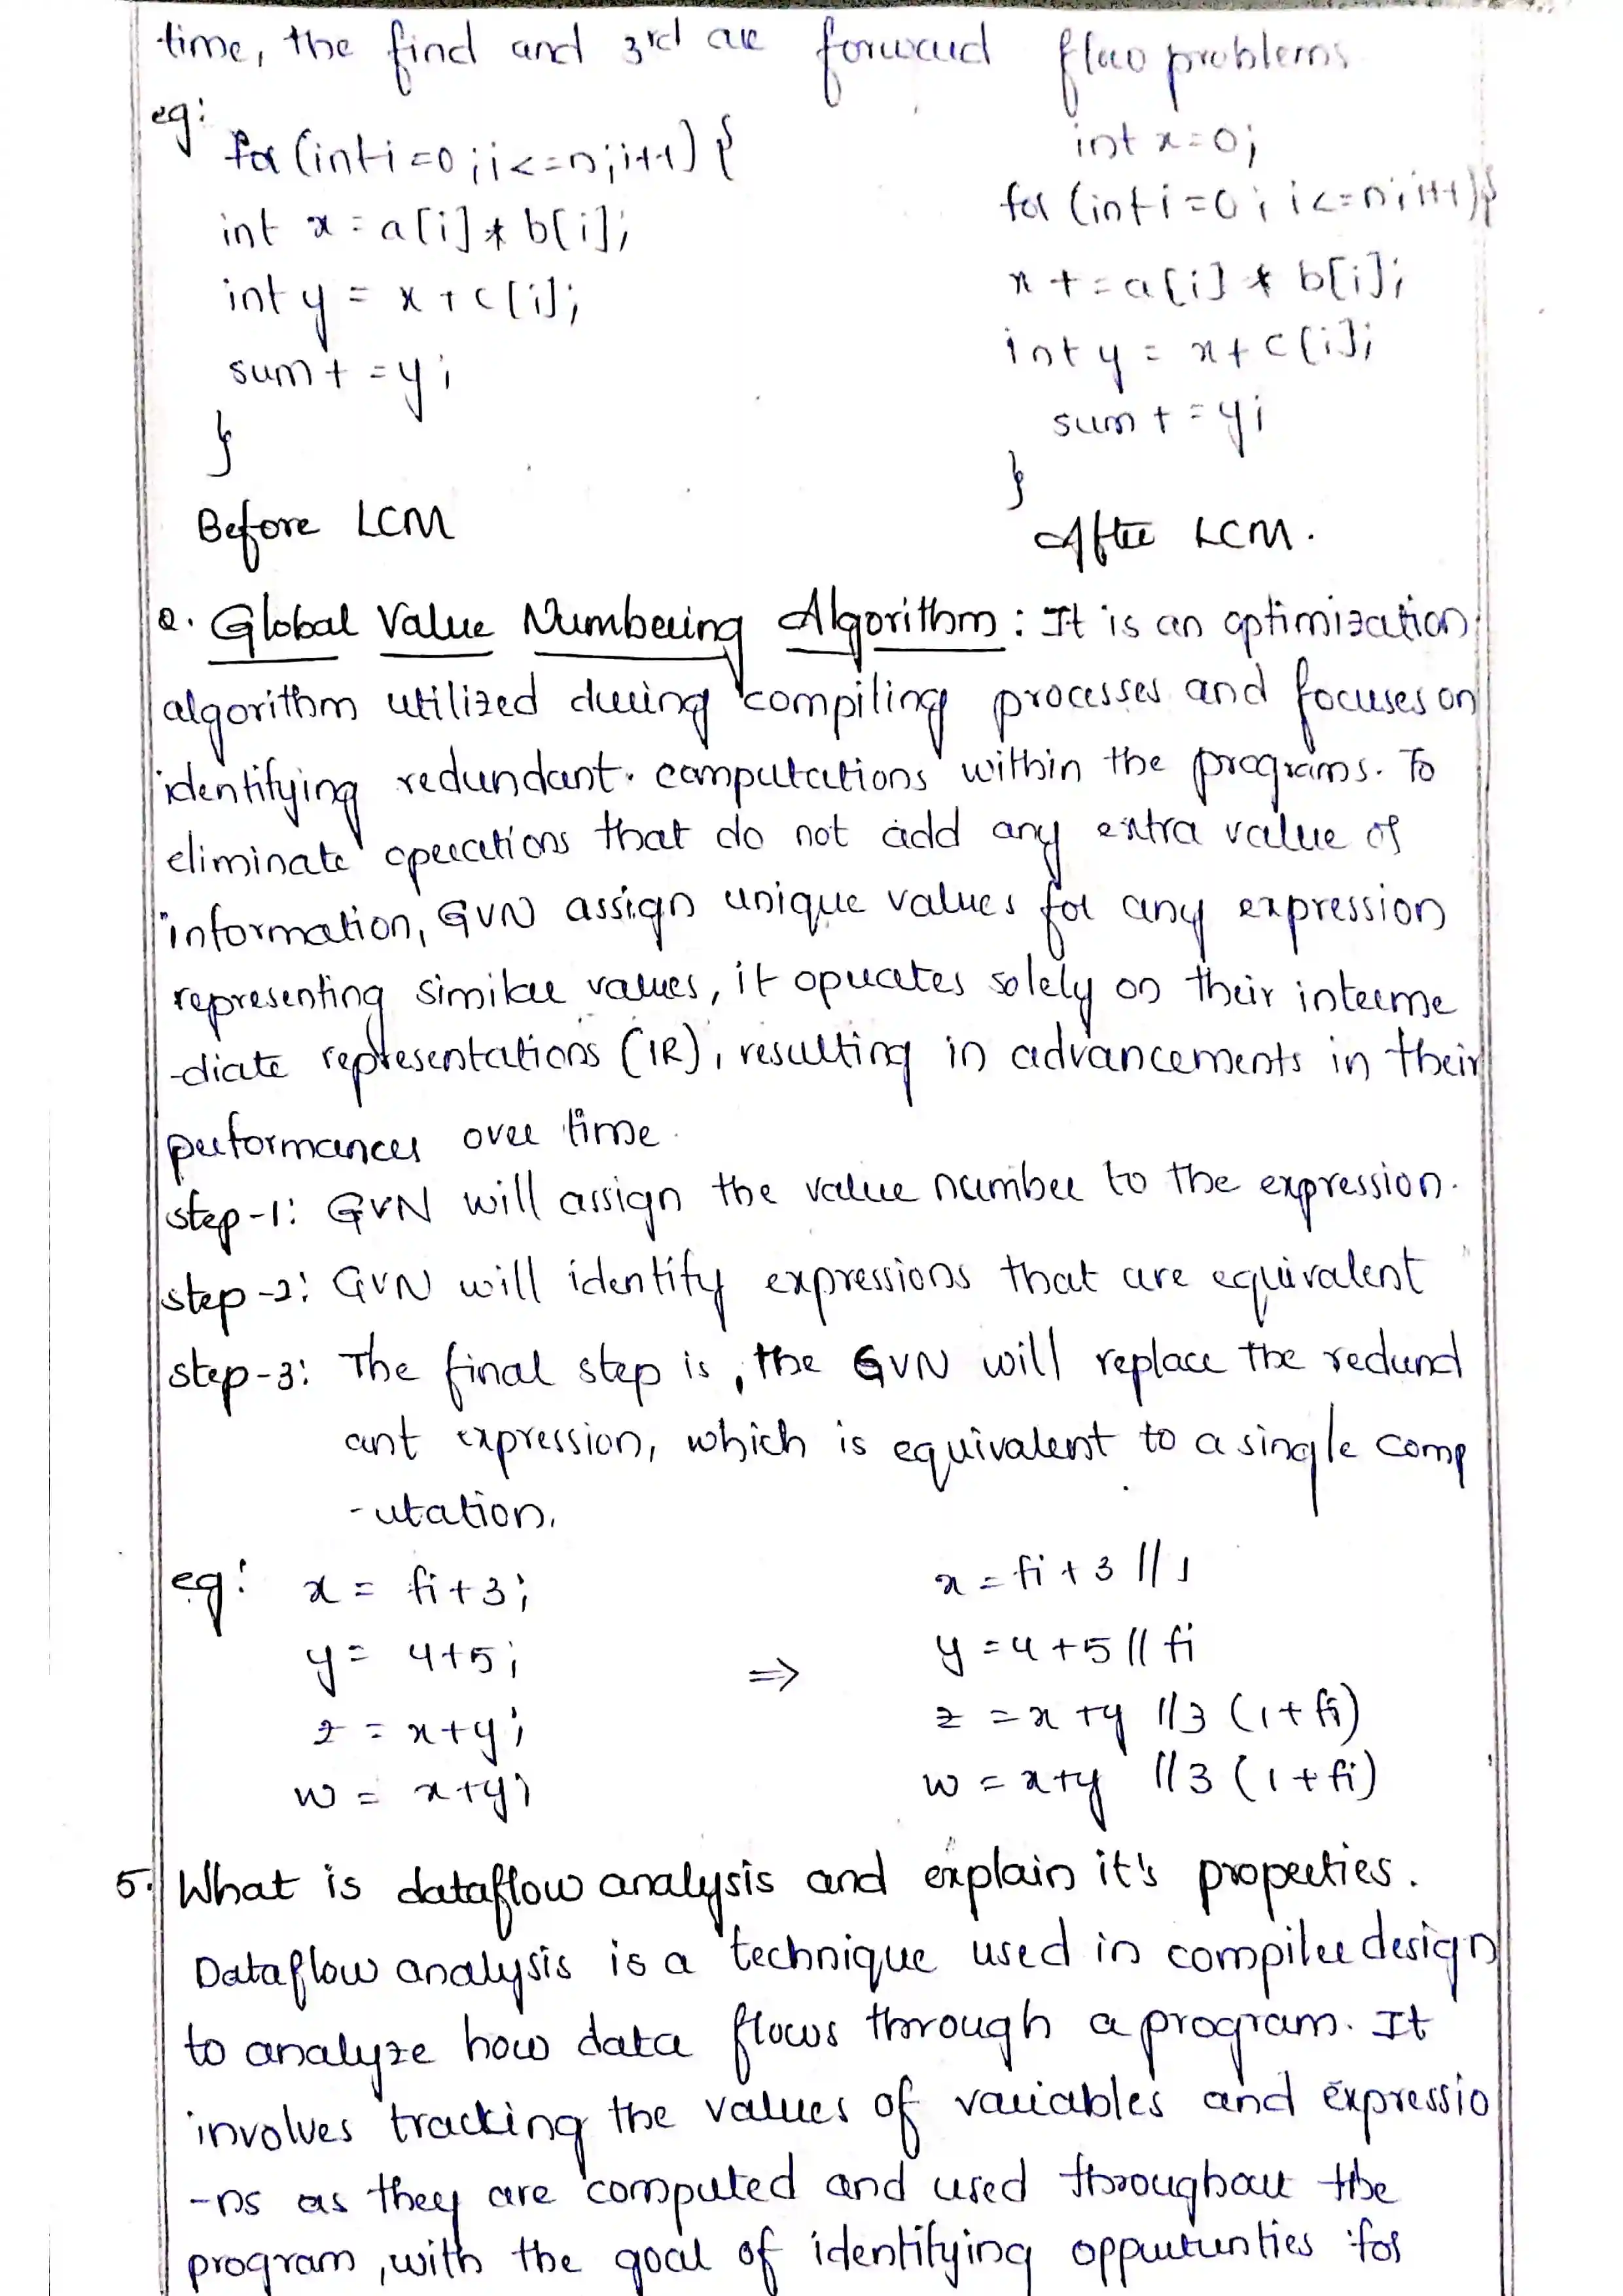 time, the find and 3rd are forward flow problems
eg:
for (int i =0 ; i <= n; i++) {
int x = a[i] * b[i];
int y = x + c[i];
sum + = y;
}
Before LCM
int x = 0;
for (int i = 0 ; i <= n ; i++) {
x + = a[i] * b[i];
int y = x + c[i];
sum + = y;
}
After LCM.
2. Global Value Numbering Algorithm : It is an optimization
algorithm utilized during compiling processes and focuses on
identifying redundant computations within the programs. To
eliminate operations that do not add any extra value of
information, GVN assign unique values for any expression
representing similar values, it operates solely on their interme
-diate representations (IR), resulting in advancements in their
performances over time.
step-1: GVN will assign the value number to the expression.
step-2: GVN will identify expressions that are equivalent
step-3: The final step is, the GVN will replace the redund
ant expression, which is equivalent to a single comp
-utation.
eg: x = fi + 3;
y = 4+5;
z = x+y;
w = x+y;
⇒
x = fi + 3 // 1
y = 4 + 5 // fi
z = x + y // 3 (1 + fi)
w = x+y // 3 (1 + fi)
5. What is dataflow analysis and explain it's properties.
Dataflow analysis is a technique used in compiler design
to analyze how data flows through a program. It
involves tracking the values of variables and expressio
-ns as they are computed and used throughout the
program, with the goal of identifying oppurtunties for